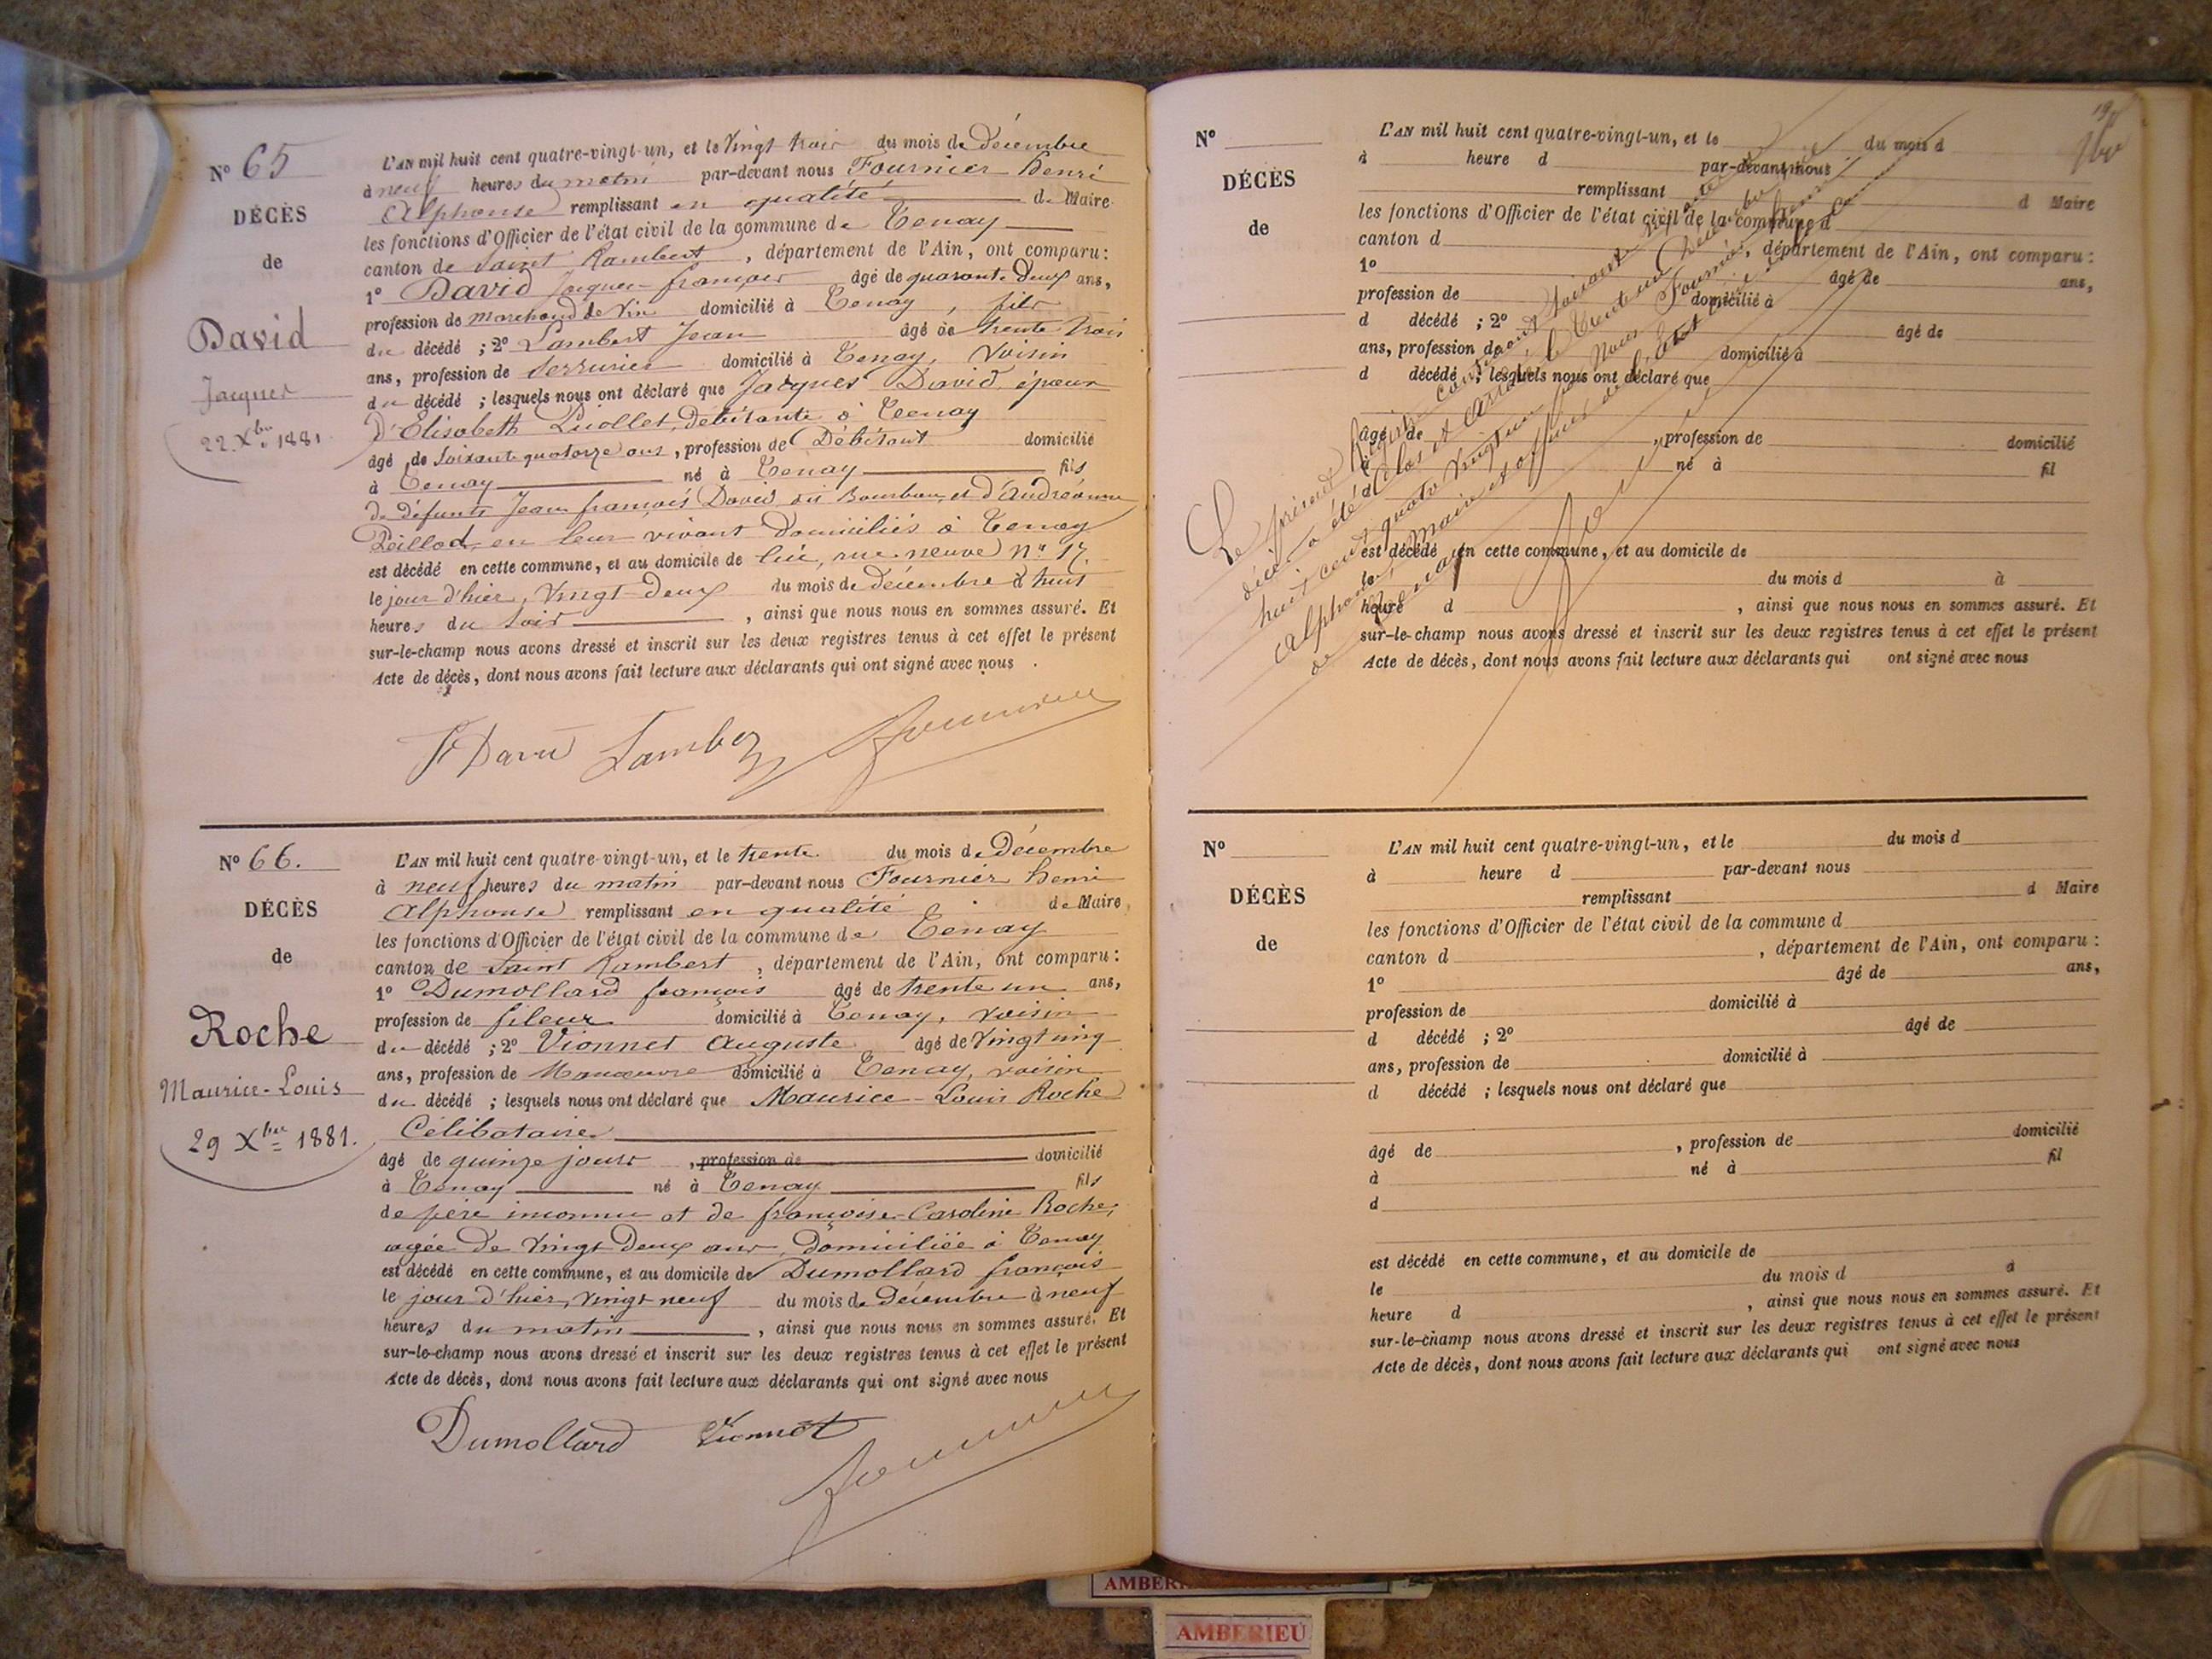 N° 65
DÉCÈS
de
David
Jacques
22 Xbre 1881
L'AN mil huit cent quatre-vingt-un, et le Vingt trois du mois de Décembre
à neuf heures du matin par-devant nous Fournier henri
Alphonse remplissant en qualité de Maire
les fonctions d'Officier de l'état civil de la commune de Tenay
canton de Saint Rambert, département de l'Ain, ont comparu:
1° David Jacques françois âgé de quarante deux ans,
profession de marchand de Vin domicilié à Tenay, fils
du décédé ; 2° Lambert Jean âgé de trente trois
ans, profession de Serrurier domicilié à Tenay, Voisin
du décédé ; lesquels nous ont déclaré que Jacques David époux
d'Elisabeth Débitante à Tenay
âgé de Soixante quatorze ans, profession de Débitant domicilié
à Tenay né à Tenay fils
de défunts Jean françois David dit Bourbon et d'Andréanne
Peillod en leur vivant domiciliés à Tenay
est décédé en cette commune, et au domicile de lui, rue neuve N° 17.
le jour d'hier, Vingt deux du mois de décembre à huit
heures du Soir, ainsi que nous nous en sommes assuré. Et
sur-le-champ nous avons dressé et inscrit sur les deux registres tenus à cet effet le présent
Acte de décès, dont nous avons fait lecture aux déclarants qui ont signé avec nous.
David Lambert Fournier
N° 66.
DÉCÈS
de
Roche
Maurice-Louis
29 Xbre 1881.
L'AN mil huit cent quatre-vingt-un, et le trente du mois de Décembre
à neuf heures du matin par-devant nous Fournier henri
Alphonse remplissant en qualité de Maire
les fonctions d'Officier de l'état civil de la commune de Tenay
canton de Saint Rambert, département de l'Ain, ont comparu:
1° Dumollard françois âgé de trente un ans,
profession de fileur domicilié à Tenay, voisin
du décédé ; 2° Vionnet Auguste âgé de Vingt cinq
ans, profession de Manoeuvre domicilié à Tenay, voisin
du décédé ; lesquels nous ont déclaré que Maurice-Louis Roche
Célibataire
âgé de quinze jours, profession de domicilié
à Tenay né à Tenay fils
de père inconnu et de françoise-Caroline Roche,
agée de Vingt deux ans, domiciliée à Tenay
est décédé en cette commune, et au domicile de Dumollard françois
le jour d'hier, vingt neuf du mois de Décembre à neuf
heures du matin, ainsi que nous nous en sommes assuré. Et
sur-le-champ nous avons dressé et inscrit sur les deux registres tenus à cet effet le présent
Acte de décès, dont nous avons fait lecture aux déclarants qui ont signé avec nous
Dumollard Vionnet Fournier
N°
DÉCÈS
de
L'AN mil huit cent quatre-vingt-un, et le du mois d
à heure d par-devant nous
remplissant d Maire
les fonctions d'Officier de l'état civil de la commune d
canton d, département de l'Ain, ont comparu:
1° âgé de ans,
profession de domicilié à
d décédé ; 2° âgé de
ans, profession de domicilié à
d décédé ; lesquels nous ont déclaré que
âgé de, profession de domicilié
à né à fil
est décédé en cette commune, et au domicile de
le du mois d à
heure d, ainsi que nous nous en sommes assuré. Et
sur-le-champ nous avons dressé et inscrit sur les deux registres tenus à cet effet le présent
Acte de décès, dont nous avons fait lecture aux déclarants qui ont signé avec nous
Le présent Registre contenant Soixante six actes de
décès a été Clos et Arrêté le Trente un Décembre mil
huit cent quatre Vingt un par Nous Fournier henri
Alphonse, Maire et officier de l'état civil de la Commune
de Tenay
Fournier
N°
DÉCÈS
de
L'AN mil huit cent quatre-vingt-un, et le du mois d
à heure d par-devant nous
remplissant d Maire
les fonctions d'Officier de l'état civil de la commune d
canton d, département de l'Ain, ont comparu:
1° âgé de ans,
profession de domicilié à
d décédé ; 2° âgé de
ans, profession de domicilié à
d décédé ; lesquels nous ont déclaré que
âgé de, profession de domicilié
à né à fil
d
est décédé en cette commune, et au domicile de
le du mois d à
heure d, ainsi que nous nous en sommes assuré. Et
sur-le-champ nous avons dressé et inscrit sur les deux registres tenus à cet effet le présent
Acte de décès, dont nous avons fait lecture aux déclarants qui ont signé avec nous
AMBERIEU